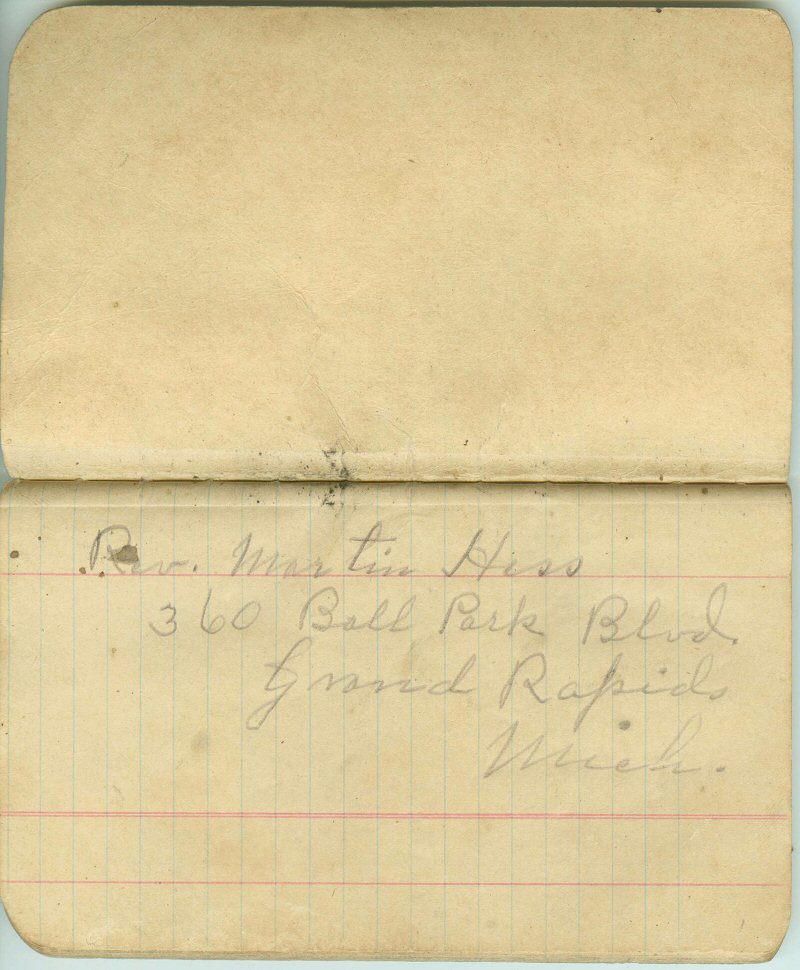 Rev. Martin Hess
360 Ball Park Blvd.
Grand Rapids
Mich.